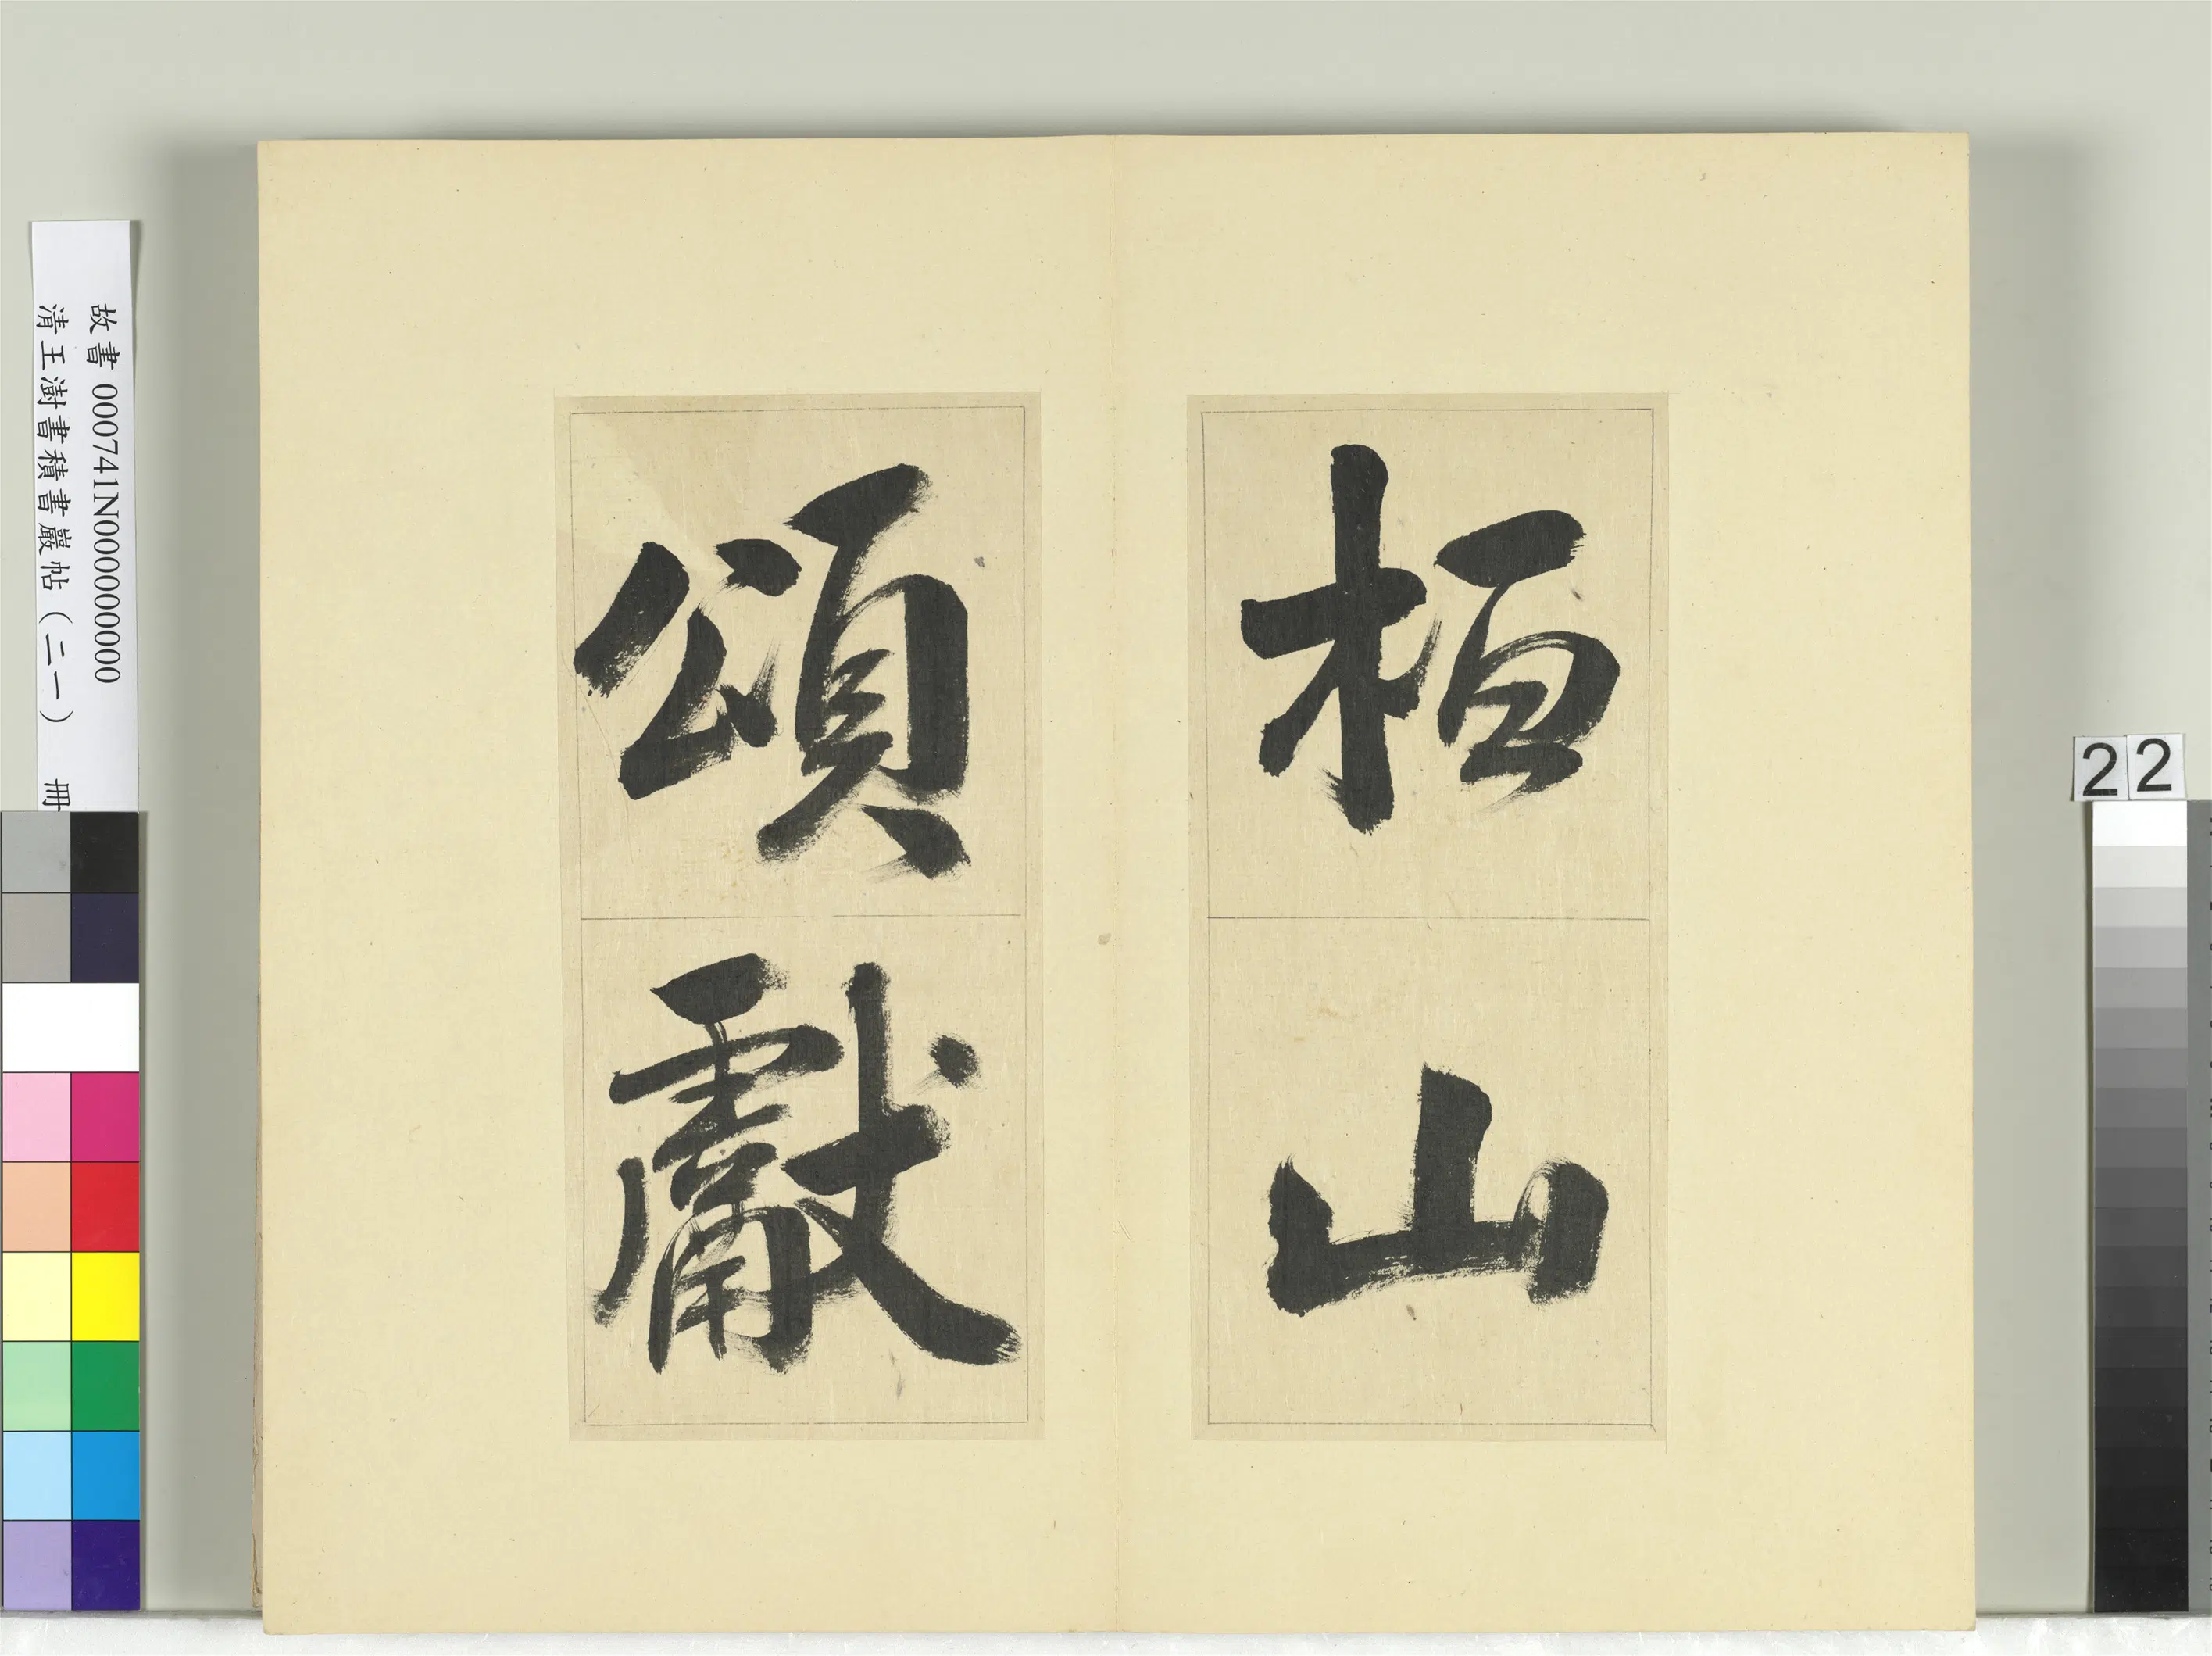 桓山
頌獻
故書 000741N000000000
清王澍書積書巖帖（二一） 冊
22